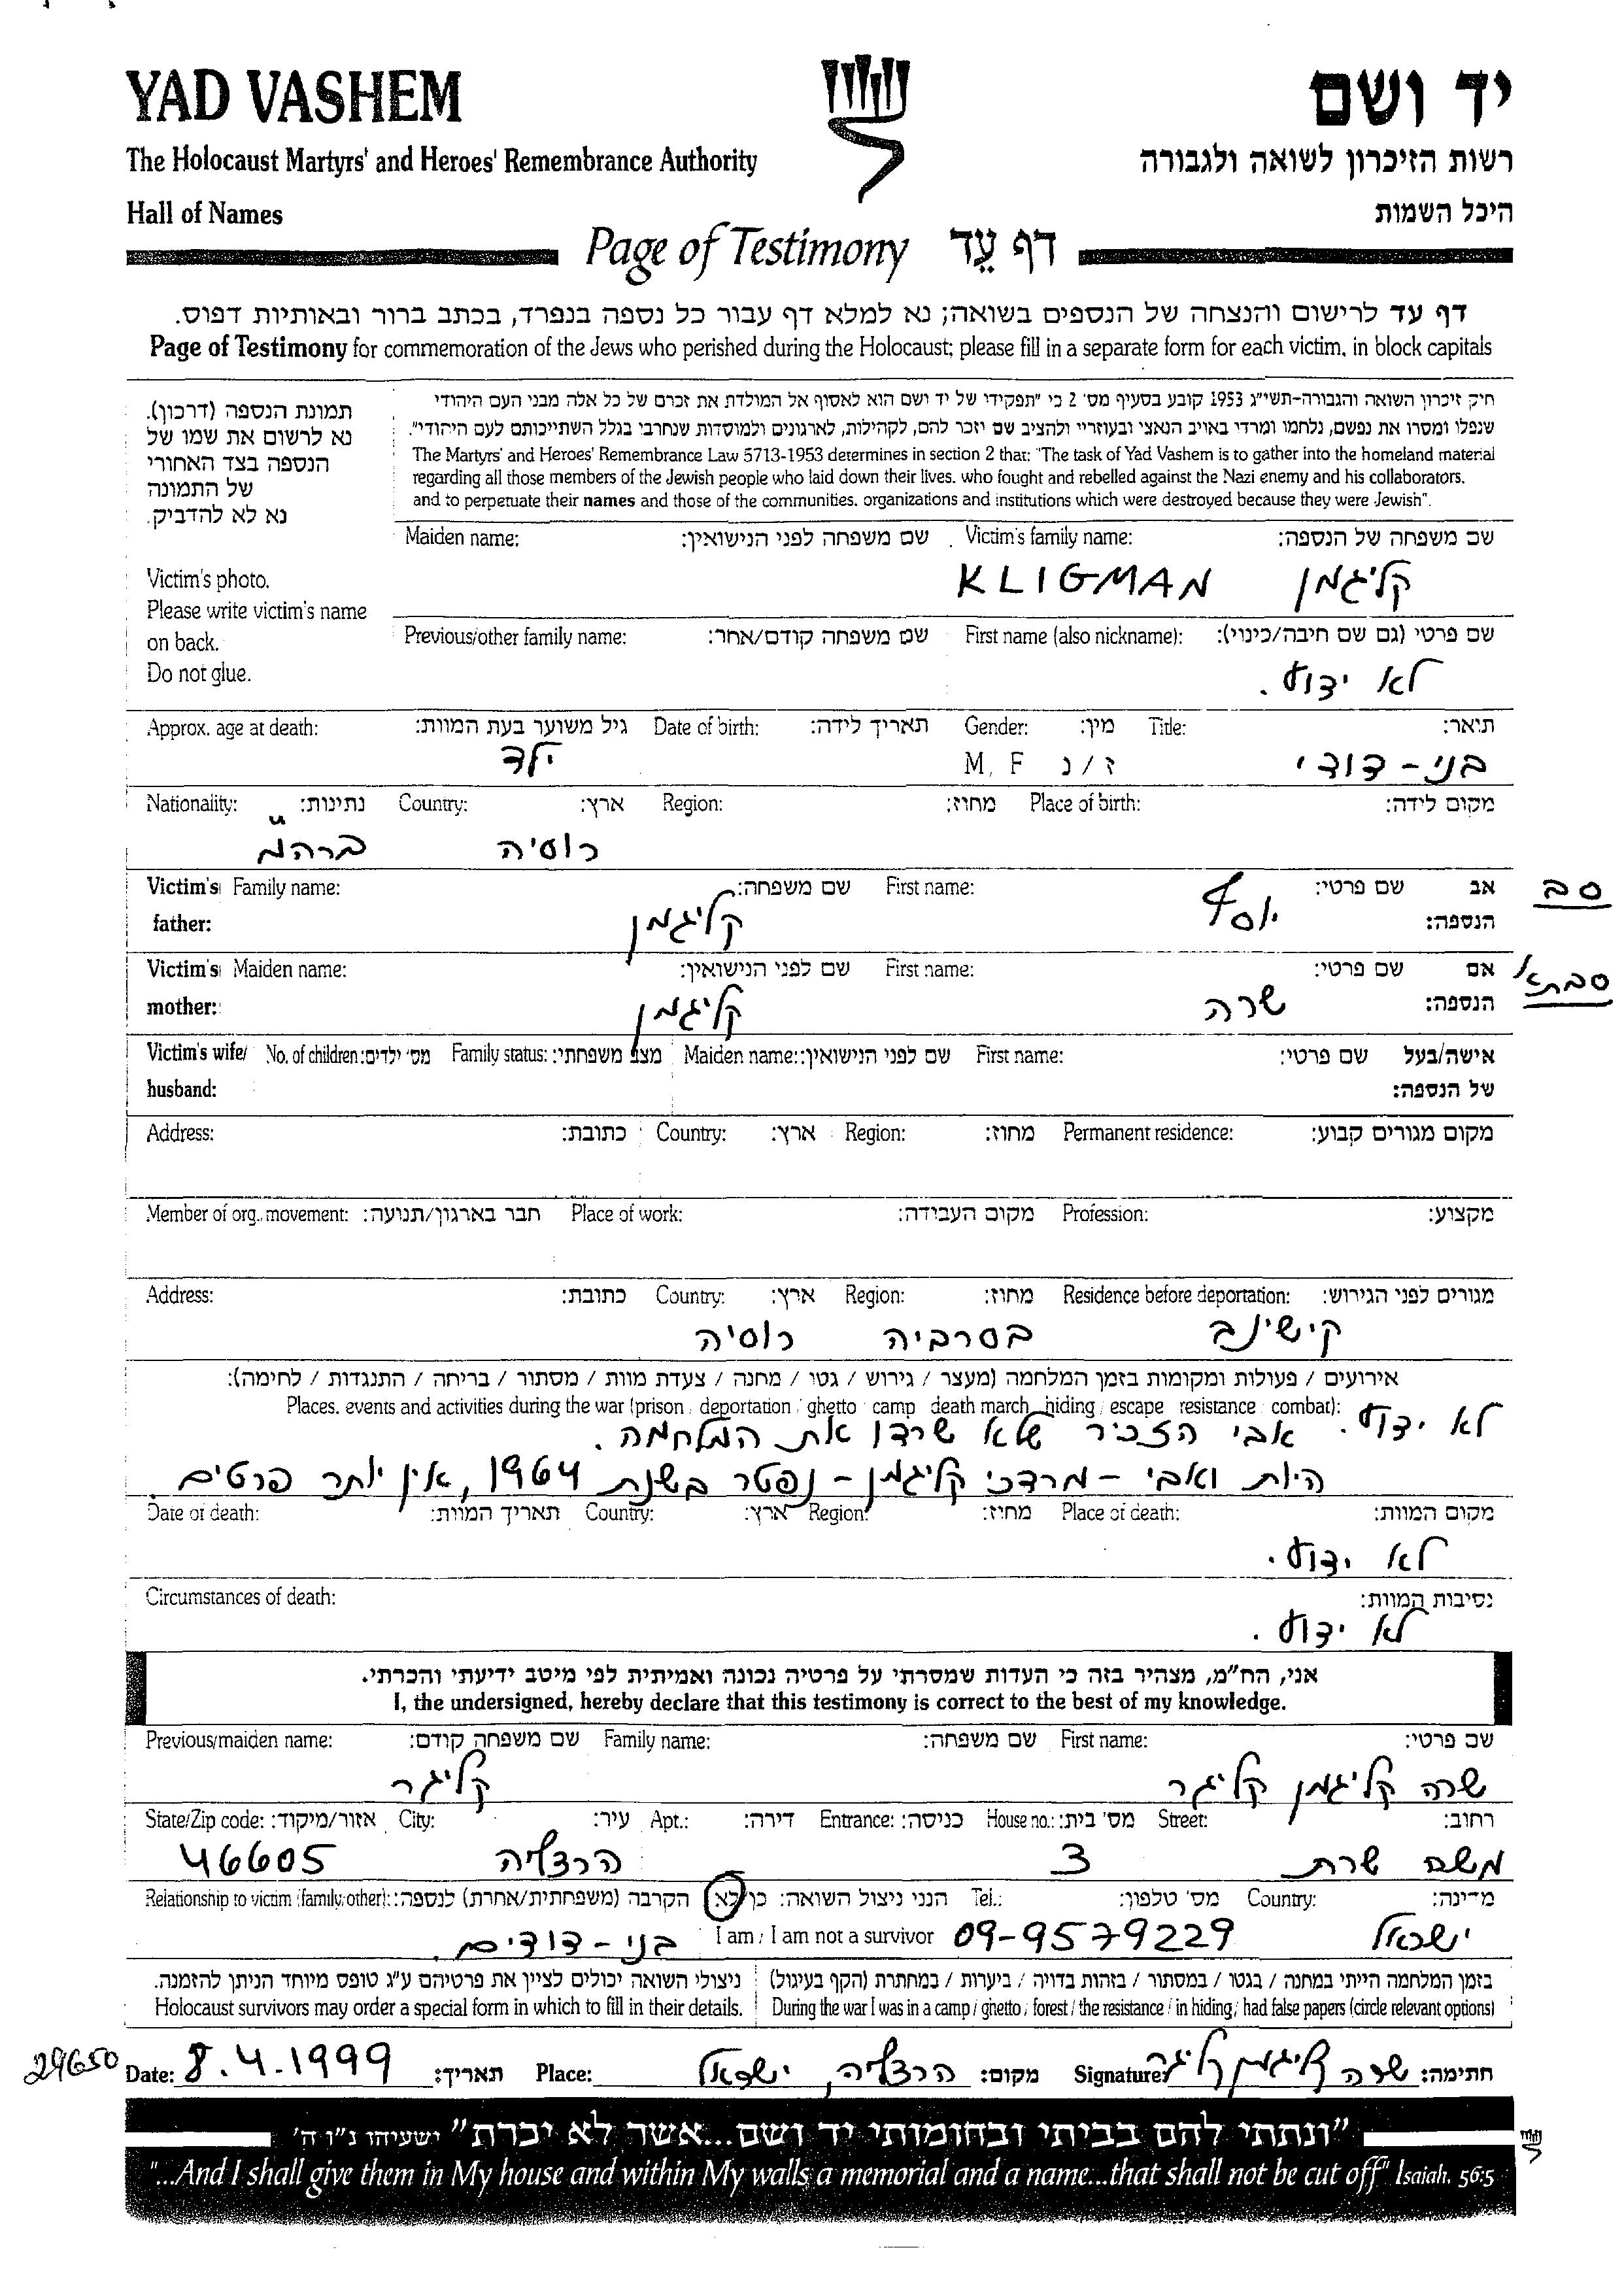 YAD VASHEM יד ושם
The Holocaust Martyrs' and Heroes' Remembrance Authority רשות הזיכרון לשואה ולגבורה
Hall of Names היכל השמות
Page of Testimony דף עֵד
דף עד לרישום והנצחה של הנספים בשואה; נא למלא דף עבור כל נספה בנפרד, בכתב ברור ובאותיות דפוס.
Page of Testimony for commemoration of the Jews who perished during the Holocaust; please fill in a separate form for each victim, in block capitals
תמונת הנספה (דרכון).
נא לרשום את שמו של
הנספה בצד האחורי
של התמונה
נא לא להדביק.
Victim's photo.
Please write victim's name
on back.
Do not glue.
חיק זיכרון השואה והגבורה-תשי"ג 1953 קובע בסעיף מס' 2 כי "תפקידי של יד ושם הוא לאסוף אל המולדת את זכרם של כל אלה מבני העם היהודי
שנפלו ומסרו את נפשם, נלחמו ומרדי באויב הנאצי ובעוזריי ולהציב שם וזכר להם, לקהילות, לארגונים ולמוסדות שנחרבי בגלל השתייכותם לעם היהודי".
The Martyrs' and Heroes' Remembrance Law 5713-1953 determines in section 2 that: "The task of Yad Vashem is to gather into the homeland material
regarding all those members of the Jewish people who laid down their lives, who fought and rebelled against the Nazi enemy and his collaborators,
and to perpetuate their names and those of the communities, organizations and institutions which were destroyed because they were Jewish".
Maiden name: שם משפחה לפני הנישואין: Victim's family name: שם משפחה של הנספה:
KLIGMAN קליגמן
Previous/other family name: שם משפחה קודם/אחר: First name (also nickname): שם פרטי (גם שם חיבה/כינוי):
לא ידוע.
Approx. age at death: גיל משוער בעת המוות: Date of birth: תאריך לידה: Gender: מין: Title: תואר:
ילד M, F ז/נ בני-דודי
Nationality: נתינות: Country: ארץ: Region: מחוז: Place of birth: מקום לידה:
ברהמ"ר רוסיה
Victim's father: Family name: שם משפחה: First name: שם פרטי: אב הנספה:
קליגמן יוסף סב
Victim's mother: Maiden name: שם לפני הנישואין: First name: שם פרטי: אם הנספה:
קליגמן שרה סבתא
Victim's wife/ husband: No. of children: מס' ילדים: Family status: מצב משפחתי: Maiden name: שם לפני הנישואין: First name: שם פרטי: אישה/בעל של הנספה:
Address: כתובת: Country: ארץ: Region: מחוז: Permanent residence: מקום מגורים קבוע:
Member of org., movement: חבר בארגון/תנועה: Place of work: מקום העבודה: Profession: מקצוע:
Address: כתובת: Country: ארץ: Region: מחוז: Residence before deportation: מגורים לפני הגירוש:
קישינב בסרביה רוסיה
אירועים / פעולות ומקומות בזמן המלחמה (מעצר / גירוש / גטו / מחנה / צעדת מוות / מסתור / בריחה / התנגדות / לחימה):
Places, events and activities during the war (prison, deportation, ghetto, camp, death march, hiding, escape, resistance, combat):
לא ידוע. אבי הזכיר שלא שרדו את המלחמה.
היות ואבי - מרדכי קליגמן - נפטר בשנת 1964, אין יותר פרטים.
Date of death: תאריך המוות: Country: ארץ: Region: מחוז: Place of death: מקום המוות:
לא ידוע.
Circumstances of death: נסיבות המוות:
לא ידוע.
אני, הח"מ, מצהיר בזה כי העדות שמסרתי על פרטיה נכונה ואמיתית לפי מיטב ידיעתי והכרתי.
I, the undersigned, hereby declare that this testimony is correct to the best of my knowledge.
Previous/maiden name: שם משפחה קודם: Family name: שם משפחה: First name: שם פרטי:
קליגר שרה קליגמן קליגר
State/Zip code: אזור/מיקוד: City: עיר: Apt.: דירה: Entrance: כניסה: House no.: מס' בית: Street: רחוב:
46605 הרצליה 3 משה שרת
Relationship to victim (family/other): הקרבה (משפחתית/אחרת) לנספה: הנני ניצול השואה: כן לא Tel.: מס' טלפון: Country: מדינה:
בני-דודים. I am / I am not a survivor 09-9579229 ישראל
בזמן המלחמה הייתי במחנה / בגטו / במסתור / בזהות בדויה / ביערות / במחתרת (הקף בעיגול) ניצולי השואה יכולים לציין את פרטיהם ע"ג טופס מיוחד הניתן להזמנה.
Holocaust survivors may order a special form in which to fill in their details. During the war I was in a camp / ghetto / forest / the resistance / in hiding / had false papers (circle relevant options)
29650 Date: 8.4.1999 תאריך: Place: הרצליה, ישראל מקום: Signature: שרה קליגמן קליגר חתימה:
"ונתתי להם בביתי ובחומותי יד ושם...אשר לא יכרת" ישעיהו נ"ו ה'
"...And I shall give them in My house and within My walls a memorial and a name...that shall not be cut off" Isaiah, 56:5